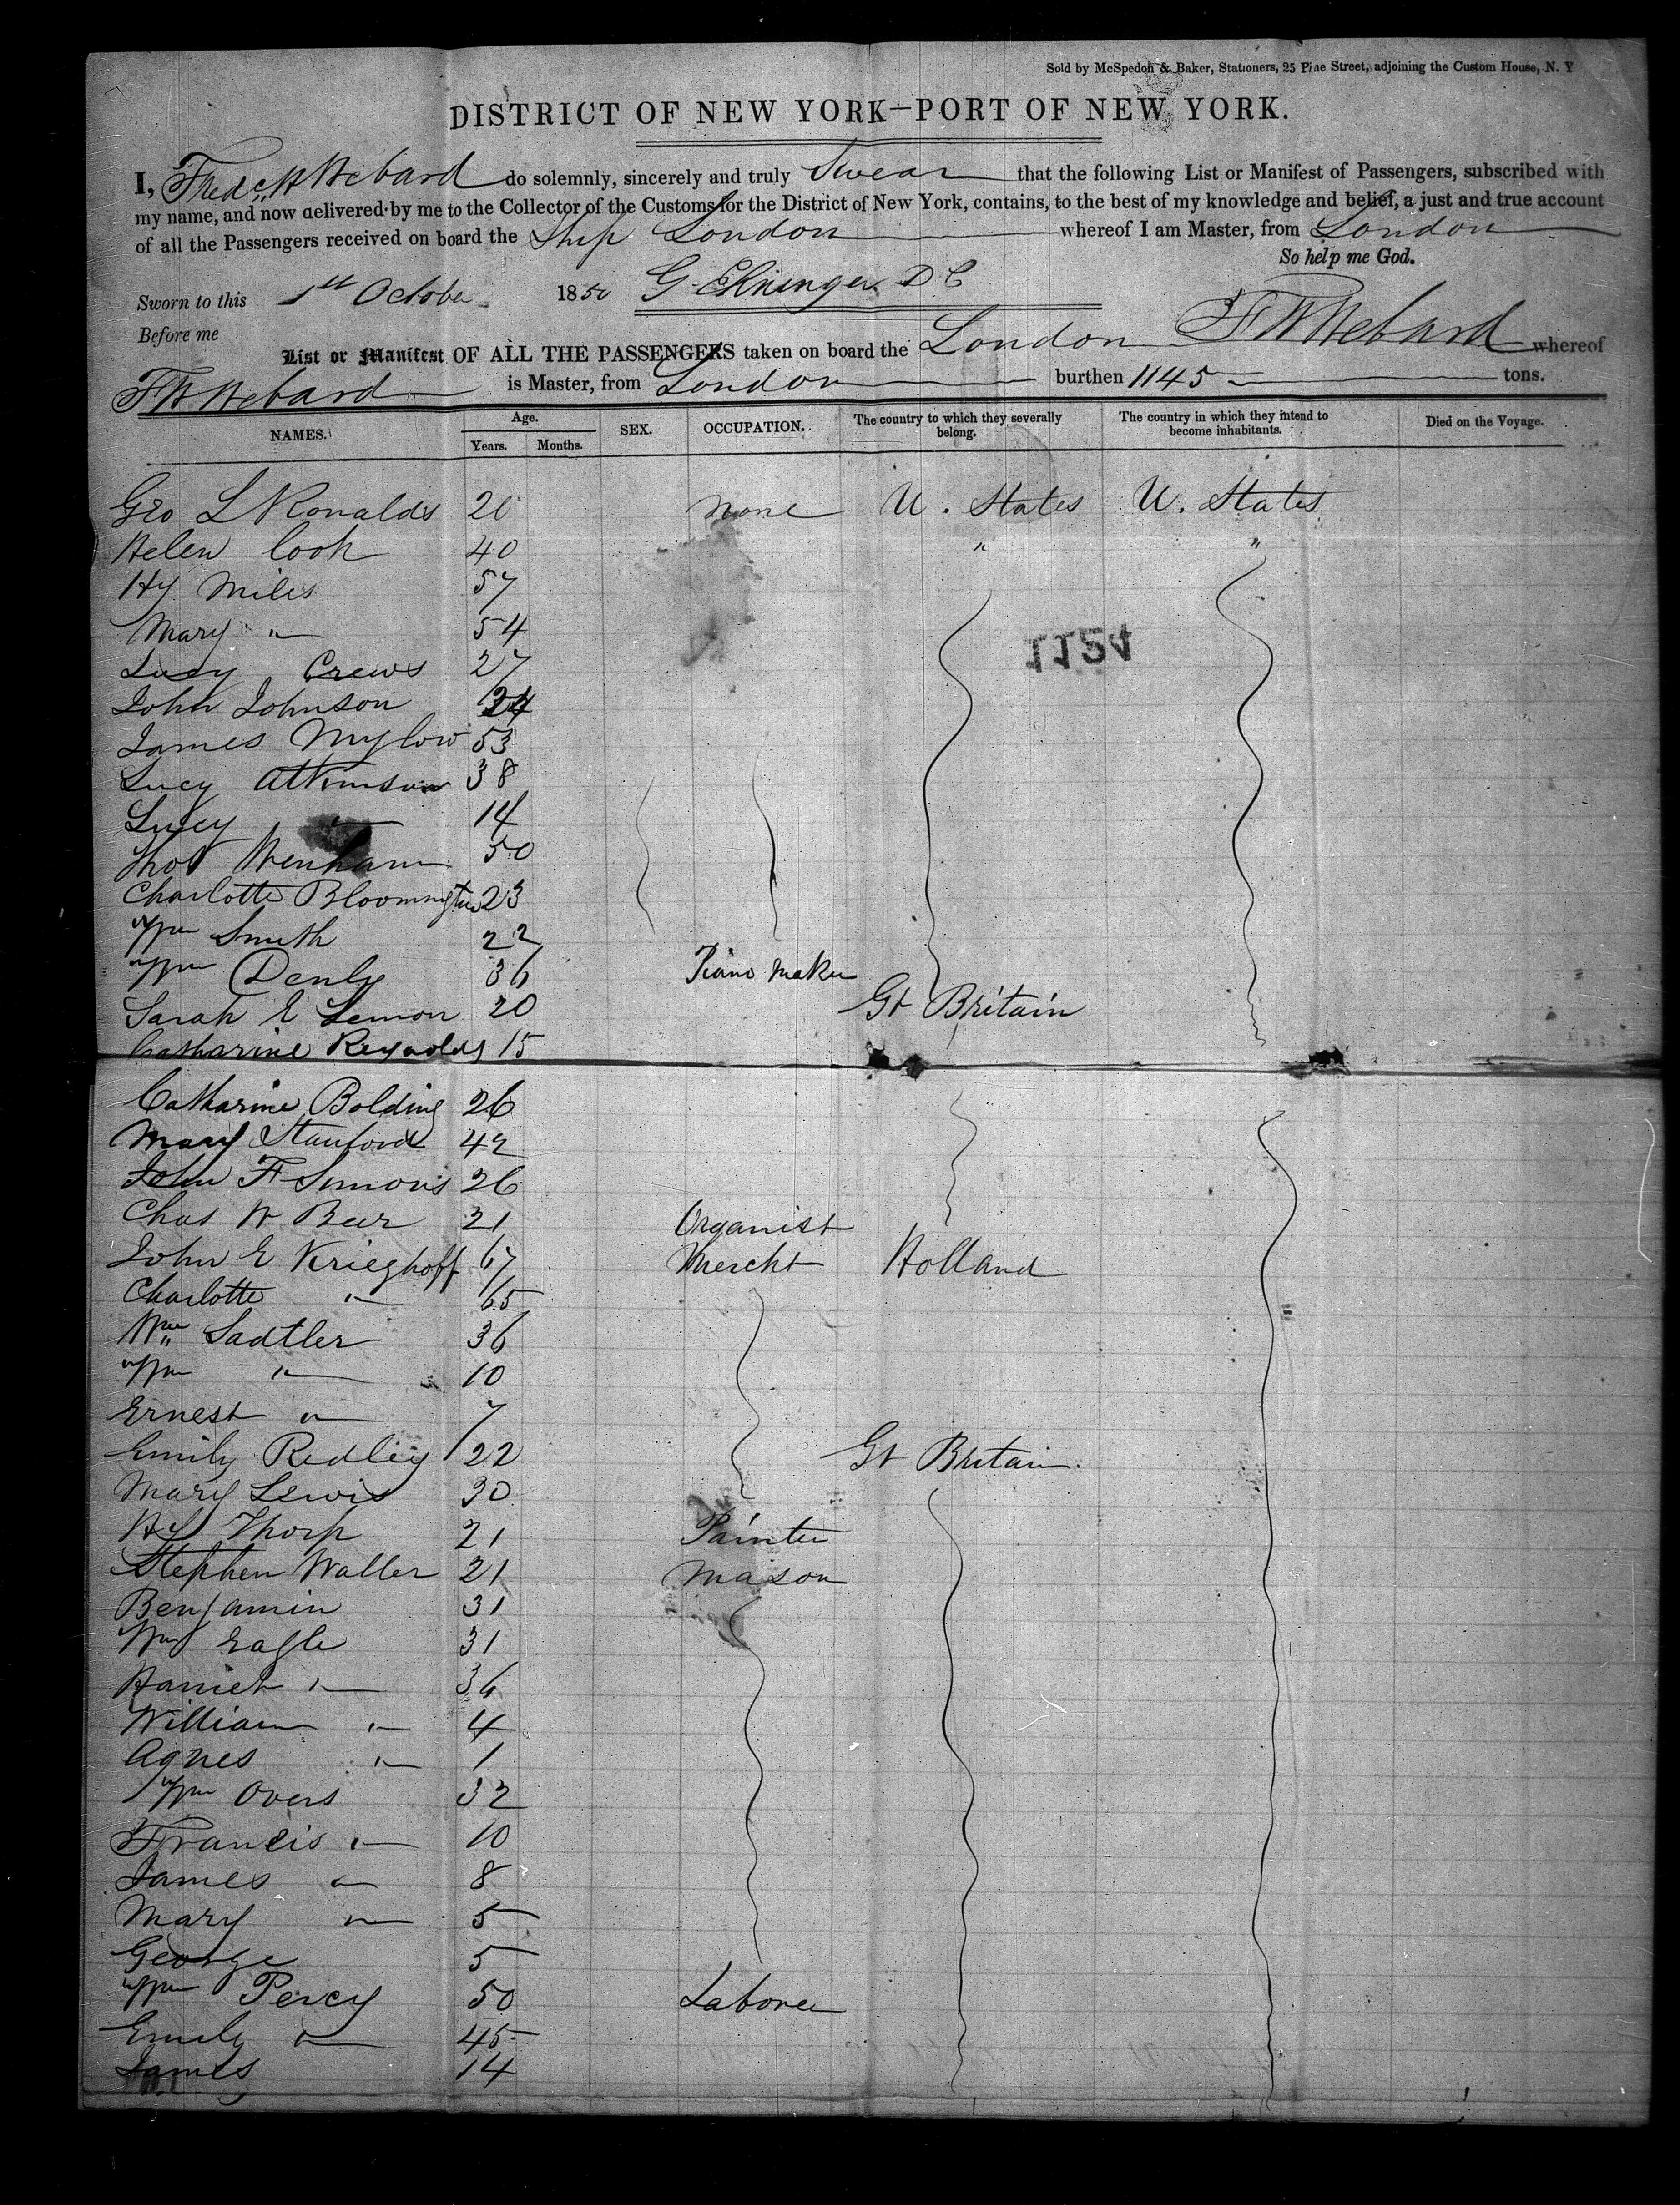 Sold by McSpedon & Baker, Stationers, 25 Pine Street, adjoining the Custom House, N. Y
DISTRICT OF NEW YORK—PORT OF NEW YORK.
I, Fredc H Hebard do solemnly, sincerely and truly Swear that the following List or Manifest of Passengers, subscribed with
my name, and now delivered by me to the Collector of the Customs for the District of New York, contains, to the best of my knowledge and belief, a just and true account
of all the Passengers received on board the Ship London whereof I am Master, from London
So help me God.
Sworn to this 1st October 1850 G D C
Before me F H Hebard
List or Manifest OF ALL THE PASSENGERS taken on board the London whereof
F H Hebard is Master, from London burthen 1145 tons.
NAMES. Age. Years. Months. SEX. OCCUPATION. The country to which they severally belong. The country in which they intend to become inhabitants. Died on the Voyage.
Geo L Ronalds 20 None U. States U. States
Helen Cook 40 " "
Hy Miles 57
Mary " 54
1154
Lucy Crews 27
John Johnson 24
James Mylow 53
Lucy Atkinson 38
Lucy " 14
Thos Wenham 50
Charlotte Bloomington 23
Wm Smith 22
Wm Denly 36 Piano Maker
Sarah E Lemon 20 Gt Britain
Catharine Reynolds 15
Catharine Bolding 26
Mary Stanford 42
John F Simons 26
Chas W Beer 21 Organist
John E Krieghoff 67 Mercht Holland
Charlotte " 65
Wm Sadtler 36
Wm " 10
Ernest " 7
Emily Redley 22 Gt Britain
Mary Lewis 30
Hy Thorp 21 Painter
Stephen Waller 21 Mason
Benjamin 31
Wm Eagle 31
Harriet " 36
William " 4
Agnes " 1
Wm Overs 32
Francis " 10
James " 8
Mary " 5
George 5
Wm Percy 50 Laborer
Emily " 45
James 14